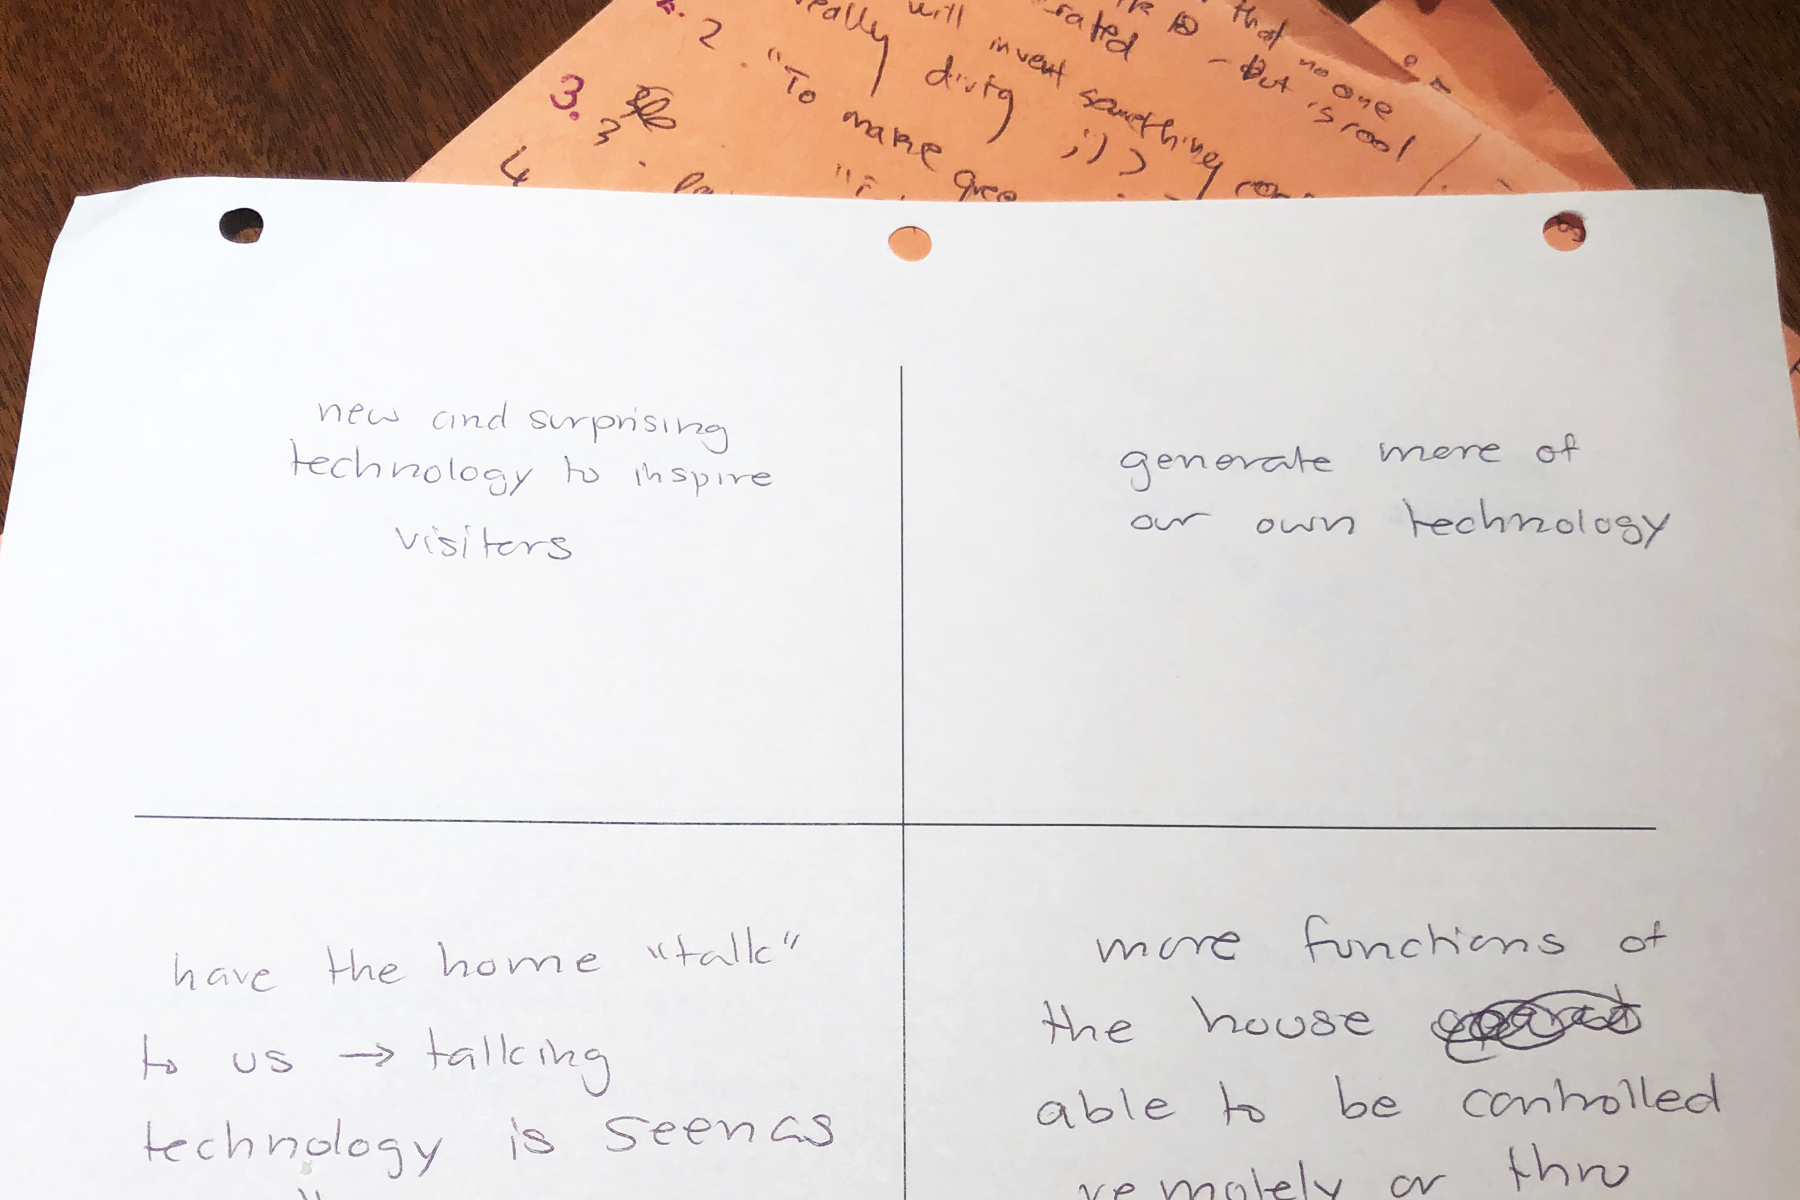 that no one
will rated - But is cool
really invent something
2 dirty ;)
3. "To make
3
4
new and surprising
technology to inspire
visitors
generate more of
our own technology
have the home "talk"
to us → talking
technology is seen as
more functions of
the house
able to be controlled
remotely or thru